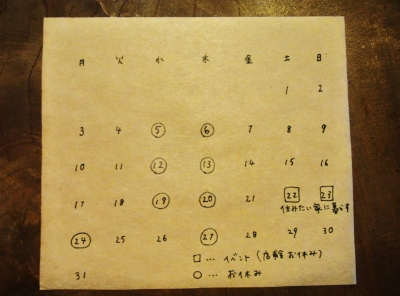 月 火 水 木 金 土 日
1 2
3 4 5 6 7 8 9
10 11 12 13 14 15 16
17 18 19 20 21 22 23
住みたい家に暮らす
24 25 26 27 28 29 30
□… イベント(店舗お休み)
31 ○… お休み